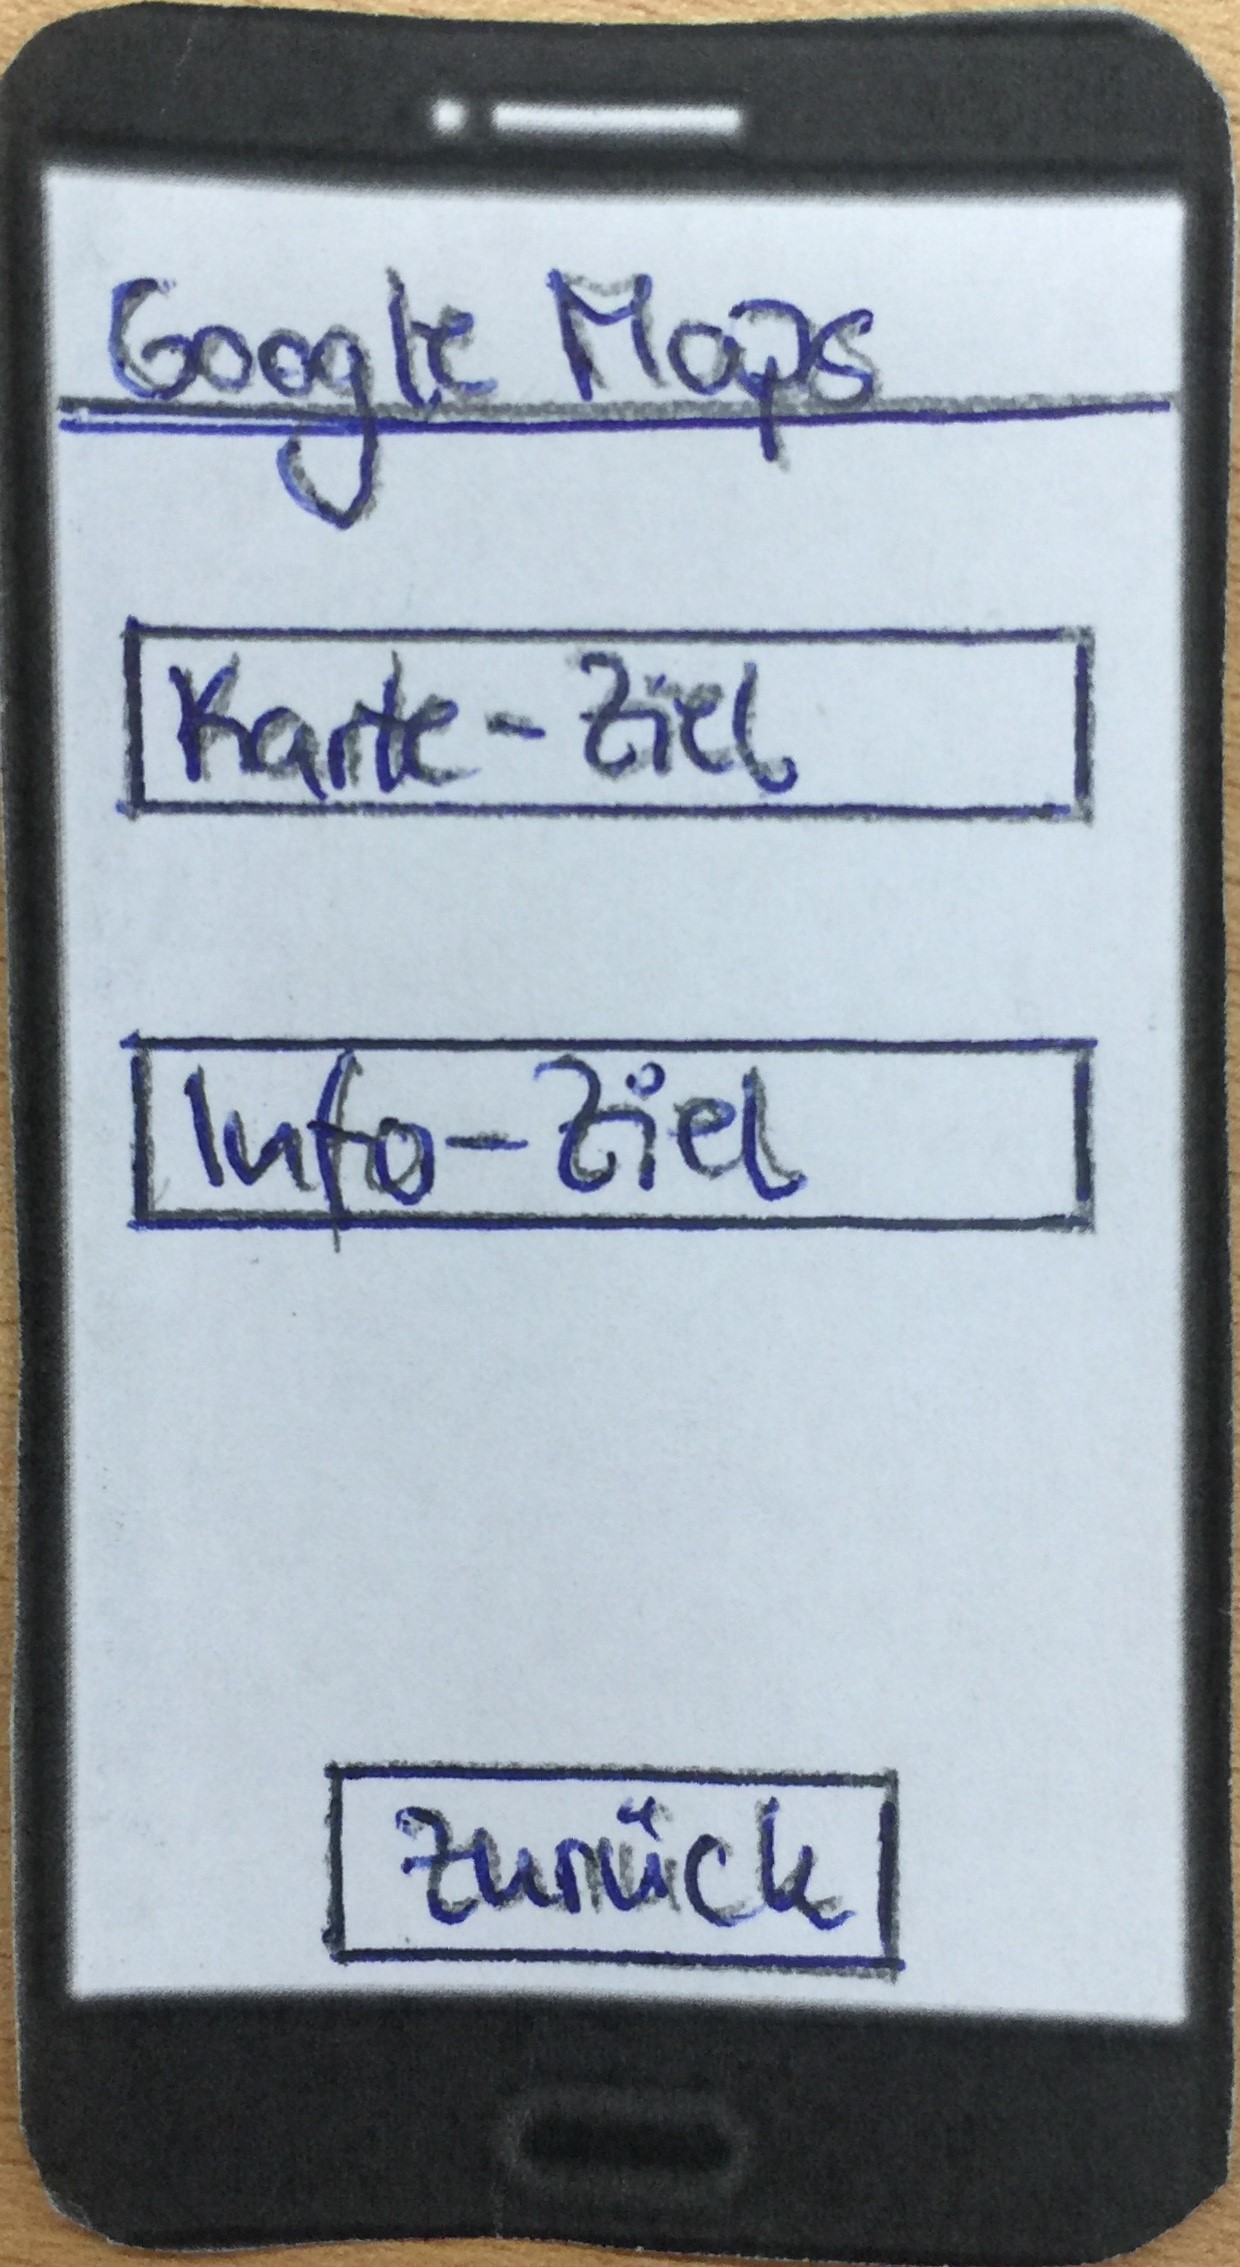 Google Maps
Karte-Ziel
Info-Ziel
Zurück